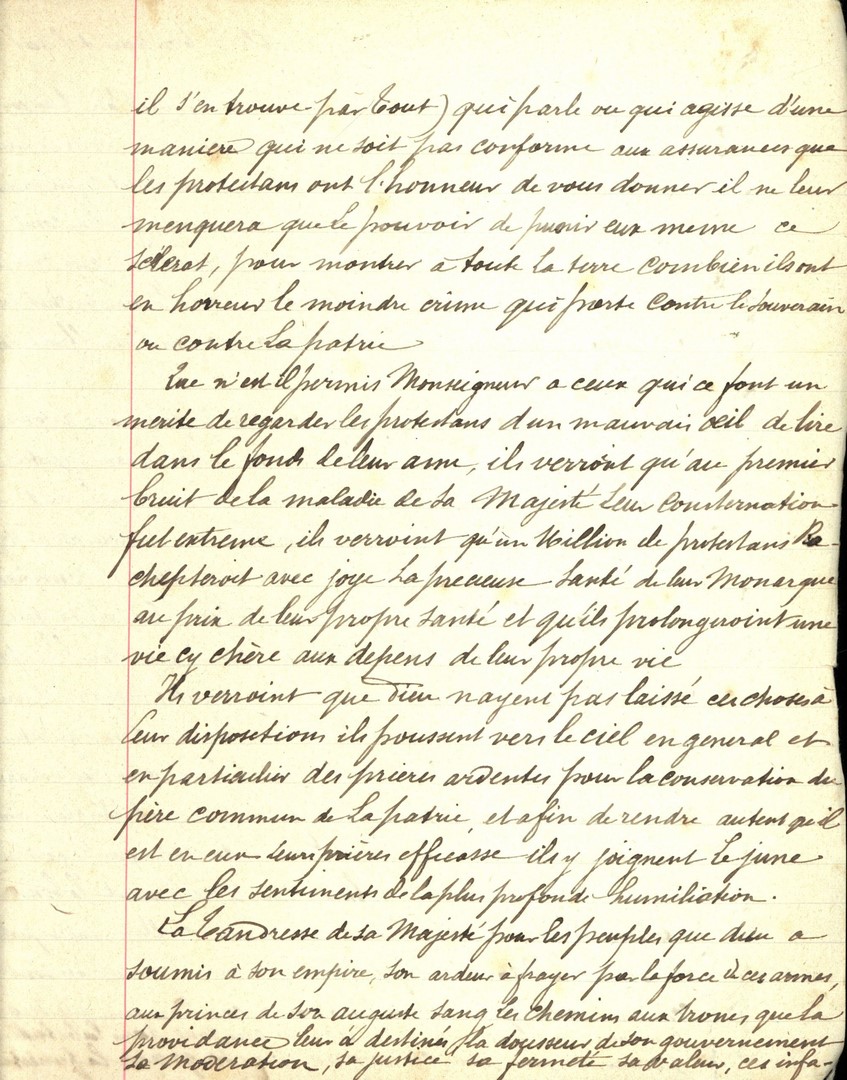 il s'en trouve par tout) qui parle ou qui agisse d'une
maniere qui ne soit pas conforme aux assurances que
les protestans ont l'honneur de vous donner il ne leur
menquera que le pouvoir de punir eux meme ce
scelerat, pour montrer a toute la terre combien ils ont
en horreur le moindre crime qui porte contre le souverain
ou contre la patrie
Que n'est il permis Monseigneur a ceux qui ce font un
merite de regarder les protestans d'un mauvais œil de lire
dans le fonds de leur ame, ils verroint qu'au premier
bruit de la maladie de sa Majesté leur consternation
fut extreme, ils verroint qu'un Million de protestans Ra-
chepteroit avec joye la precieuse santé de leur Monarque
au prix de leur propre santé et qu'ils prolongeroint une
vie cy chère aux depens de leur propre vie
Ils verroint que Dieu nayent pas laissé ces choses à
leur dispositions ils poussent vers le ciel en general et
en particulier des prieres ardentes pour la conservation du
père commun de la patrie, et afin de rendre autent qu'il
est en eux leurs prières efficasse ils y joignent le june
avec les sentiments de la plus profonde humiliation.
La tandresse de sa Majesté pour les peuples que dieu a
soumis à son empire, son ardeur à frayer par la force de ces armes,
aux princes de son auguste sang les chemins aux trones que la
providance leur à destinés, la dousseur de son gouvernement
sa moderation, sa justice sa fermeté sa valeur, ces infa-